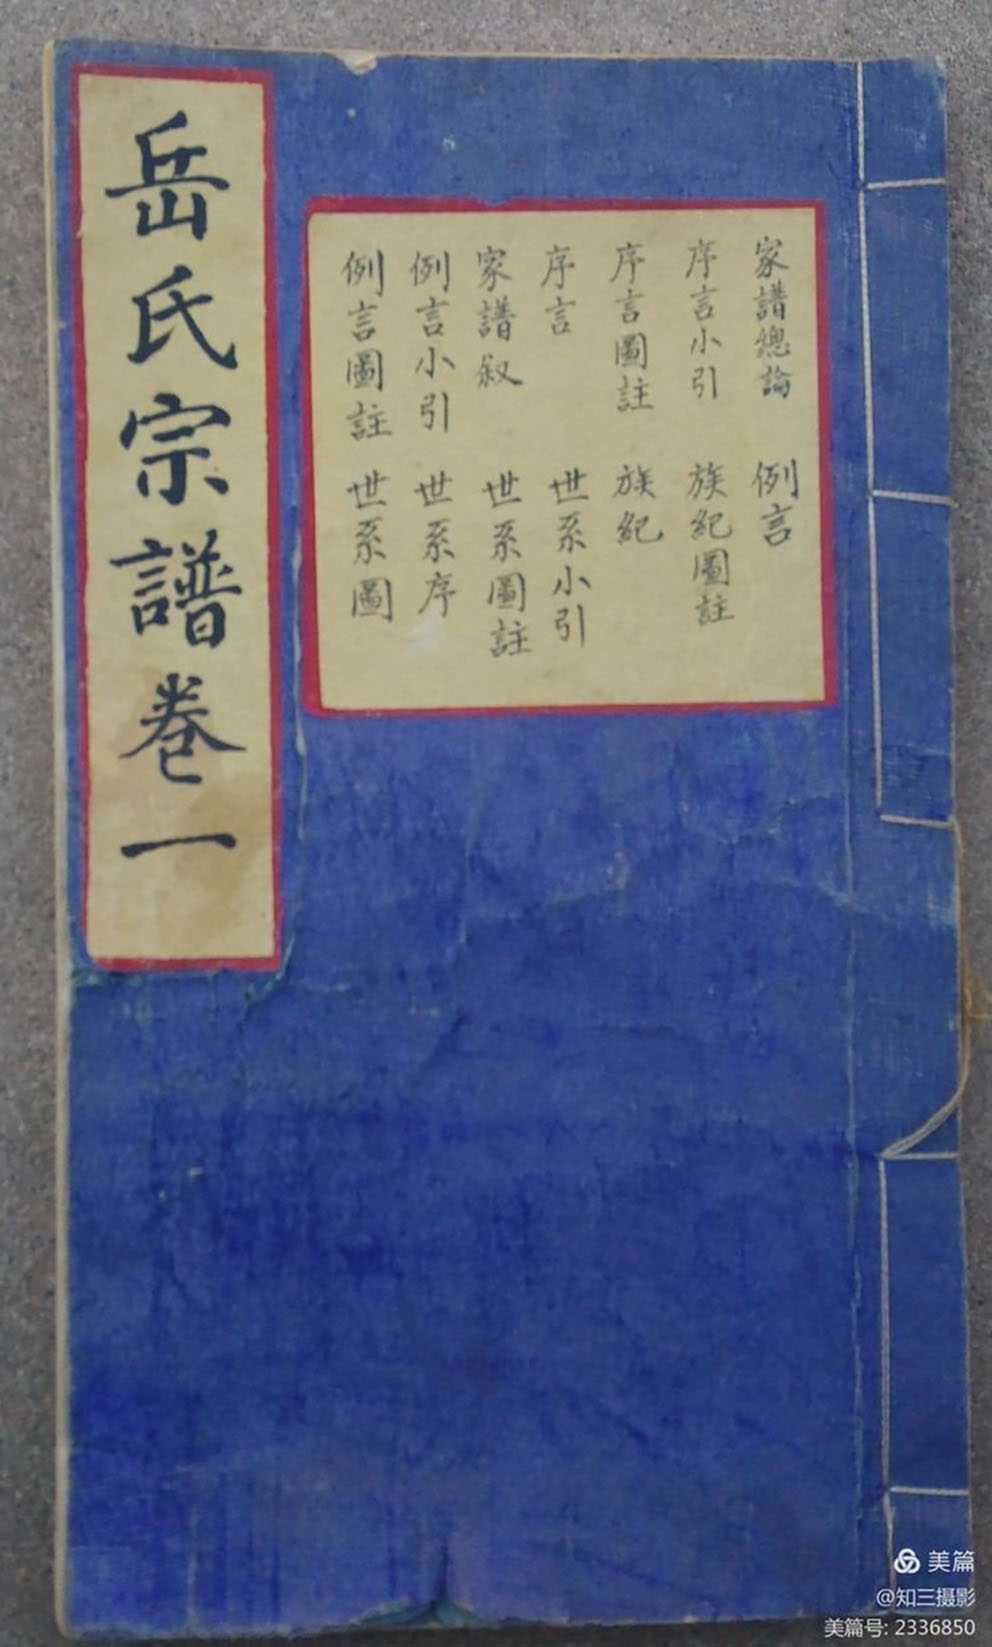 岳氏宗譜卷一
家譜總論
序言小引
序言圖註
序言
家譜叙
例言小引
例言圖註
例言
族紀圖註
族紀
世系小引
世系圖註
世系序
世系圖
美篇
@知三摄影
美篇号: 2336850